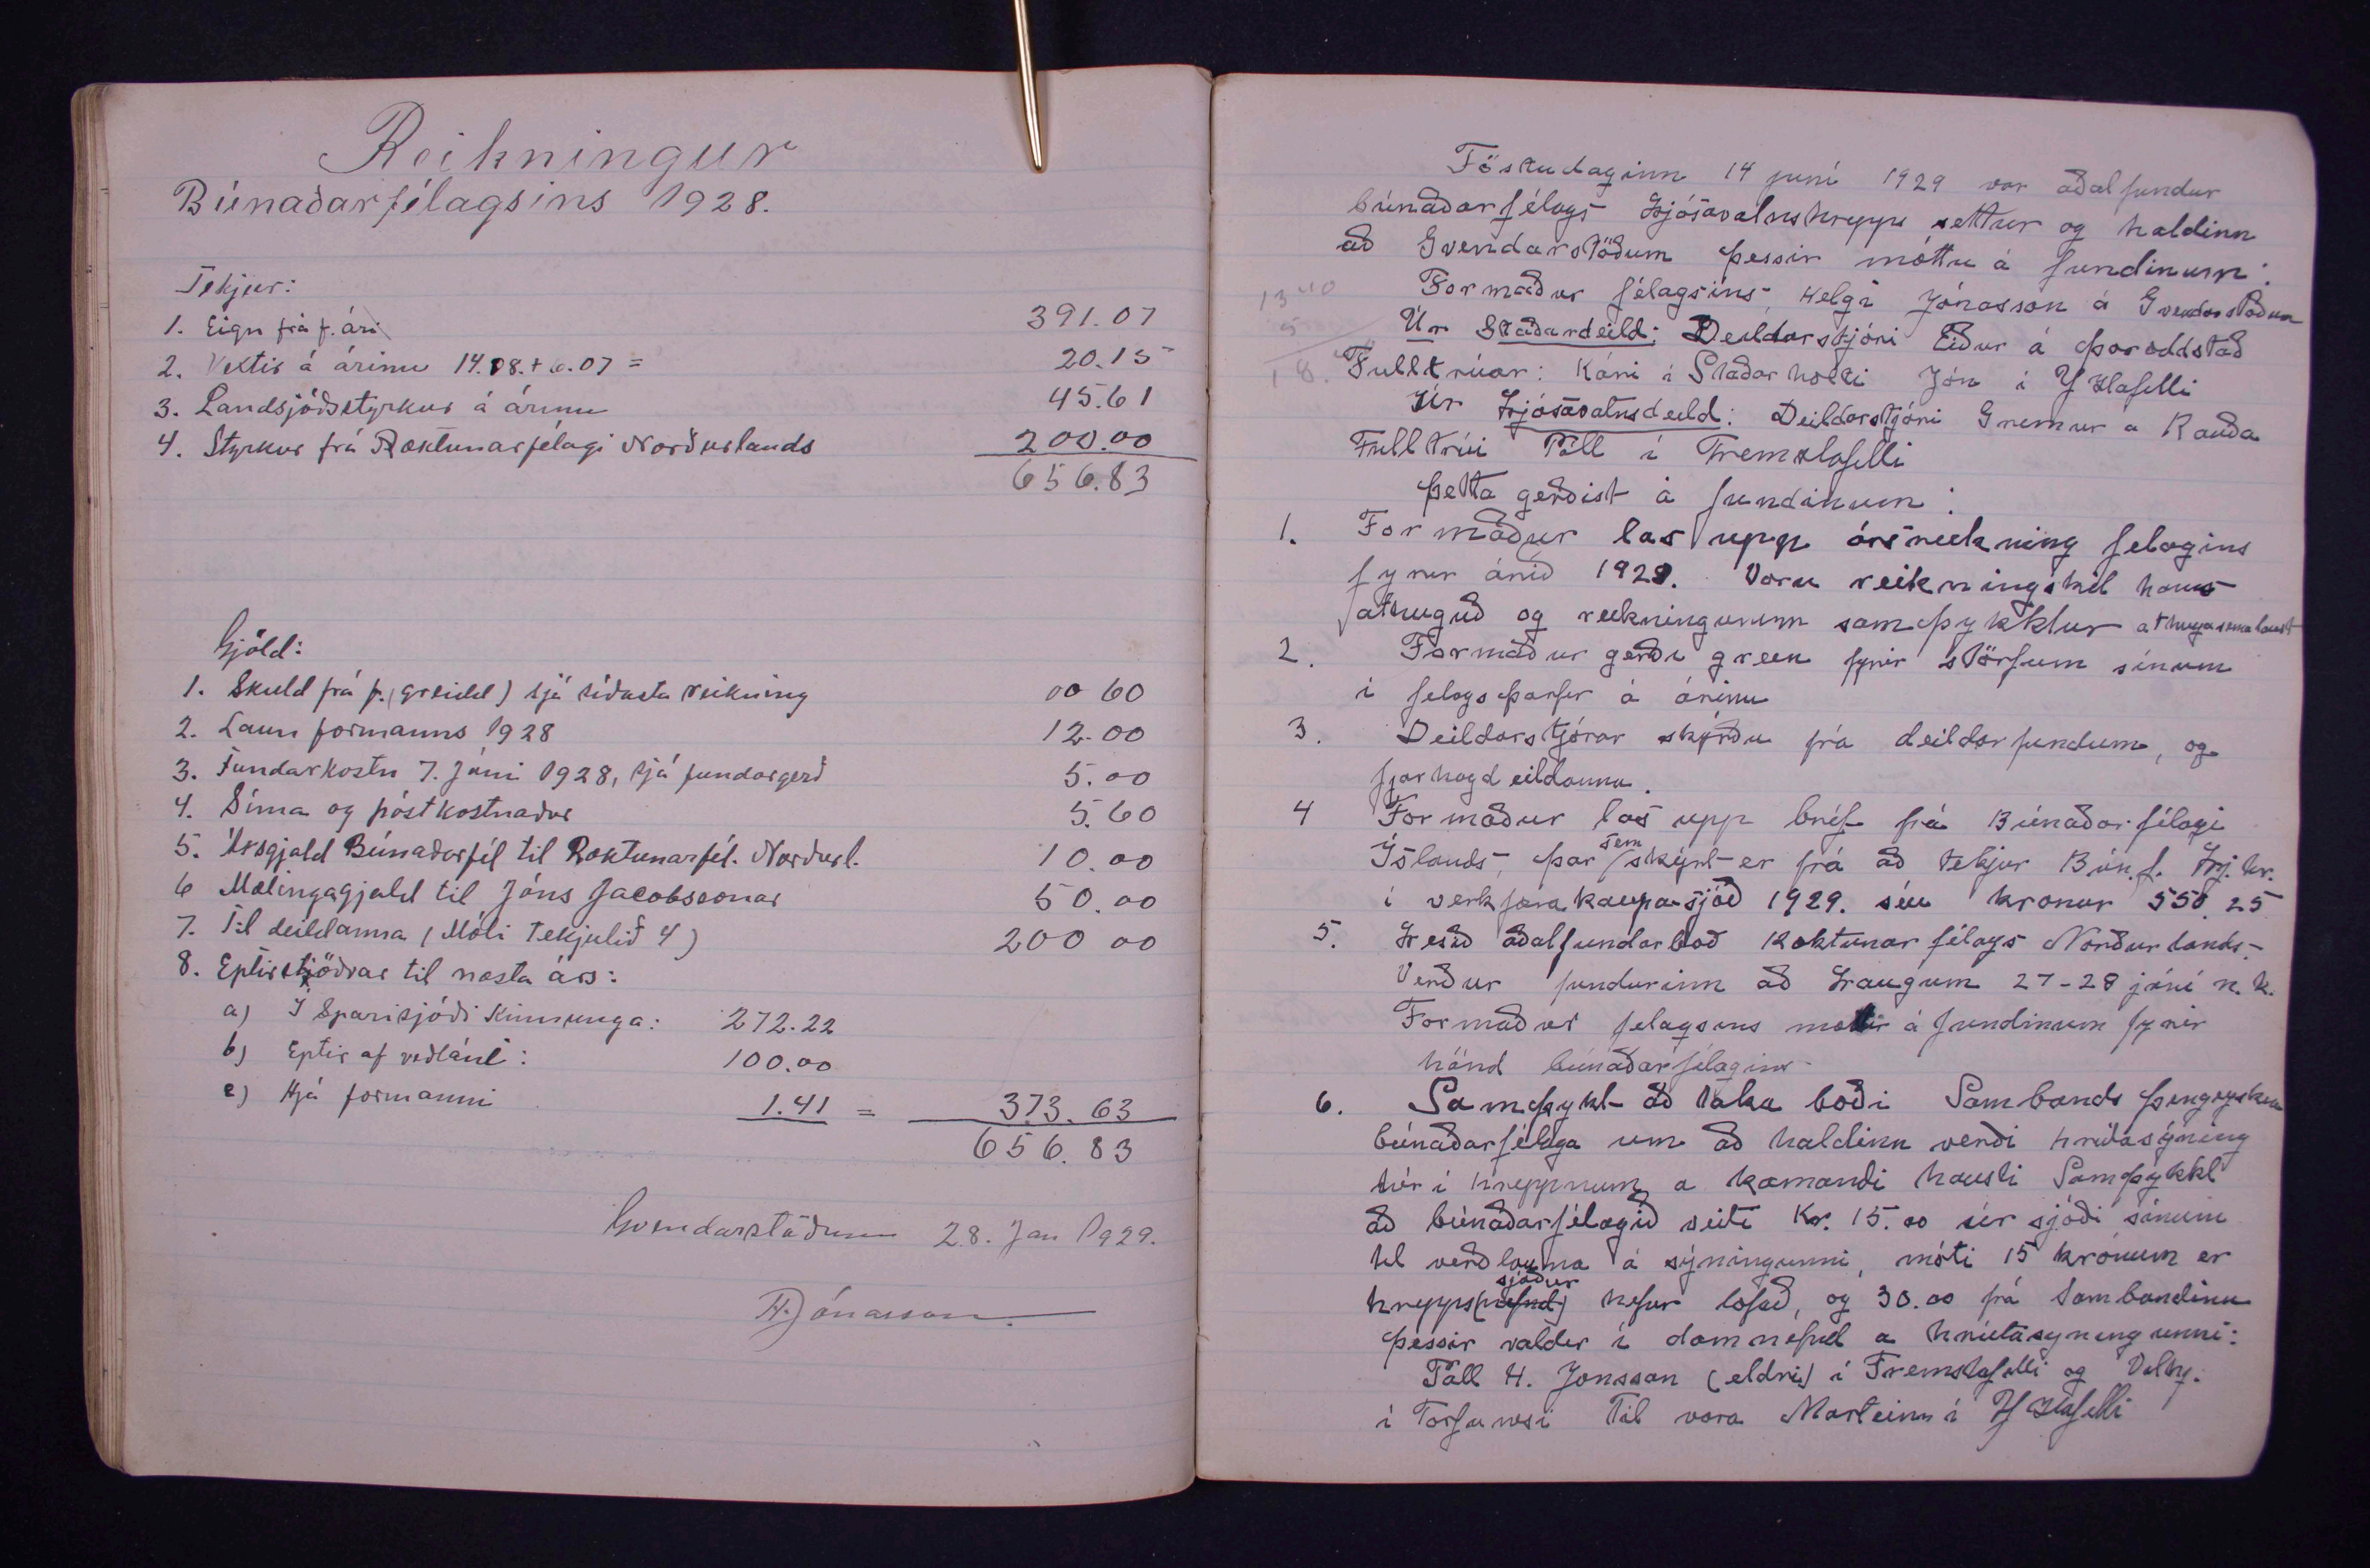 Reikningur
Búnaðarfélagsins 1928.
Tekjur:
1. Eign frá f. ári 391.07
2. Vextir á árinu 14.08.+6.07 = 20.15
3. Landsjóðsstyrkur á árinu 45.61
4. Styrkur frá Ræktunarfélagi Norðurlands 200.00
656.83
Gjöld:
1. Skuld frá f. (greidd) sjá síðasta reikning 00 60
2. Laun formanns 1928 12.00
3. Fundarkostn 7. Júni 1928, sjá fundargerð 5.00
4. Síma og póstkostnaður 5.60
5. Ársgjald Búnaðarfél til Ræktunarfél. Norðurl. 10.00
6 Mælingagjald til Jóns Jacobssonar 50.00
7. Til deildanna (Móti Tekjulið 4) 200 00
8. Eptirstöðvar til næsta árs:
a) Í Sparisjóði Kinnunga: 272.22
b) Eptir af veðláni: 100.00
c) Hjá formanni 1.41 = 373.63
656.83
Gvendarstöðum 28. Jan 1929.
H. Jónasson.
Föstudaginn 14 júní 1929 var aðalfundur
búnaðarfélags Ljósavatnshrepps settur og haldinn
að Gvendarstöðum þessir mættu á fundinum:
Formaður félagsins, Helgi Jónasson á Gvendarstöðum
Úr Staðardeild: Deildarstjóri Eiður á Þoroddstað
Fulltrúar: Kári í Staðarholti Jón í Y Hlafelli
Úr Ljósavatnsdeild: Deildarstjóri Grímur a Rauða
Fulltrúi Páll í Fremstafelli
Þetta gerðist á fundinum:
1. Formaður las upp ársreikning felagins
fyrir árið 1928. Voru reikningskil hans
athuguð og reikningurinn samþykktur athugasemalaust
2. Formaður gerði grein fyrir störfum sínum
í felagsþarfir á árinu
3. Deildarstjórar skýrðu frá deildarfundum, og
fjarhag deildanna.
4 Formaður las upp bréf frá Búnaðarfélagi
Íslands, þar sem skýrt er frá að tekjur Bún.f. Lj.hr.
í verkfærakaupasjóð 1929. séu kronur 550.25
5. Lesið aðalfundarboð Ræktunarfélags Norðurlands.
Verður fundurinn að Laugum 27-28 júní n.k.
Formaður felagsins mætir á fundinum fyrir
hönd búnaðarfélagins
6. Samþykt að taka boði Sambands þingeyskra
búnaðarfélaga um að haldinn verði hrútasýning
hér í hreppnum a komandi hausti Samþykkt
að búnaðarfélagið veiti Kr. 15.00 úr sjóði sínum
til verðlauna á sýningunni, móti 15 krónum er
hreppssjóður hefur lofað, og 30.00 frá Sambandinu
þessir valdir í domnefnd a hrútasyningunni:
Páll H. Jonsson (eldri) í Fremstafelli og Valty.
í Torfunesi Til vara Marteinn í Y Hlafelli